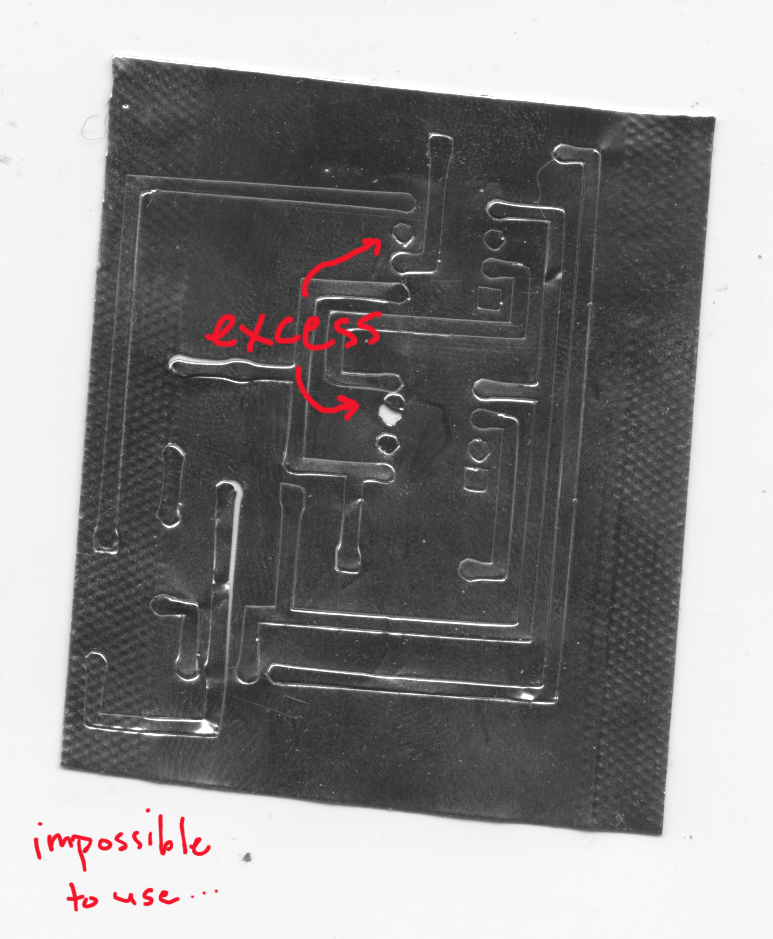 excess
impossible
to use...